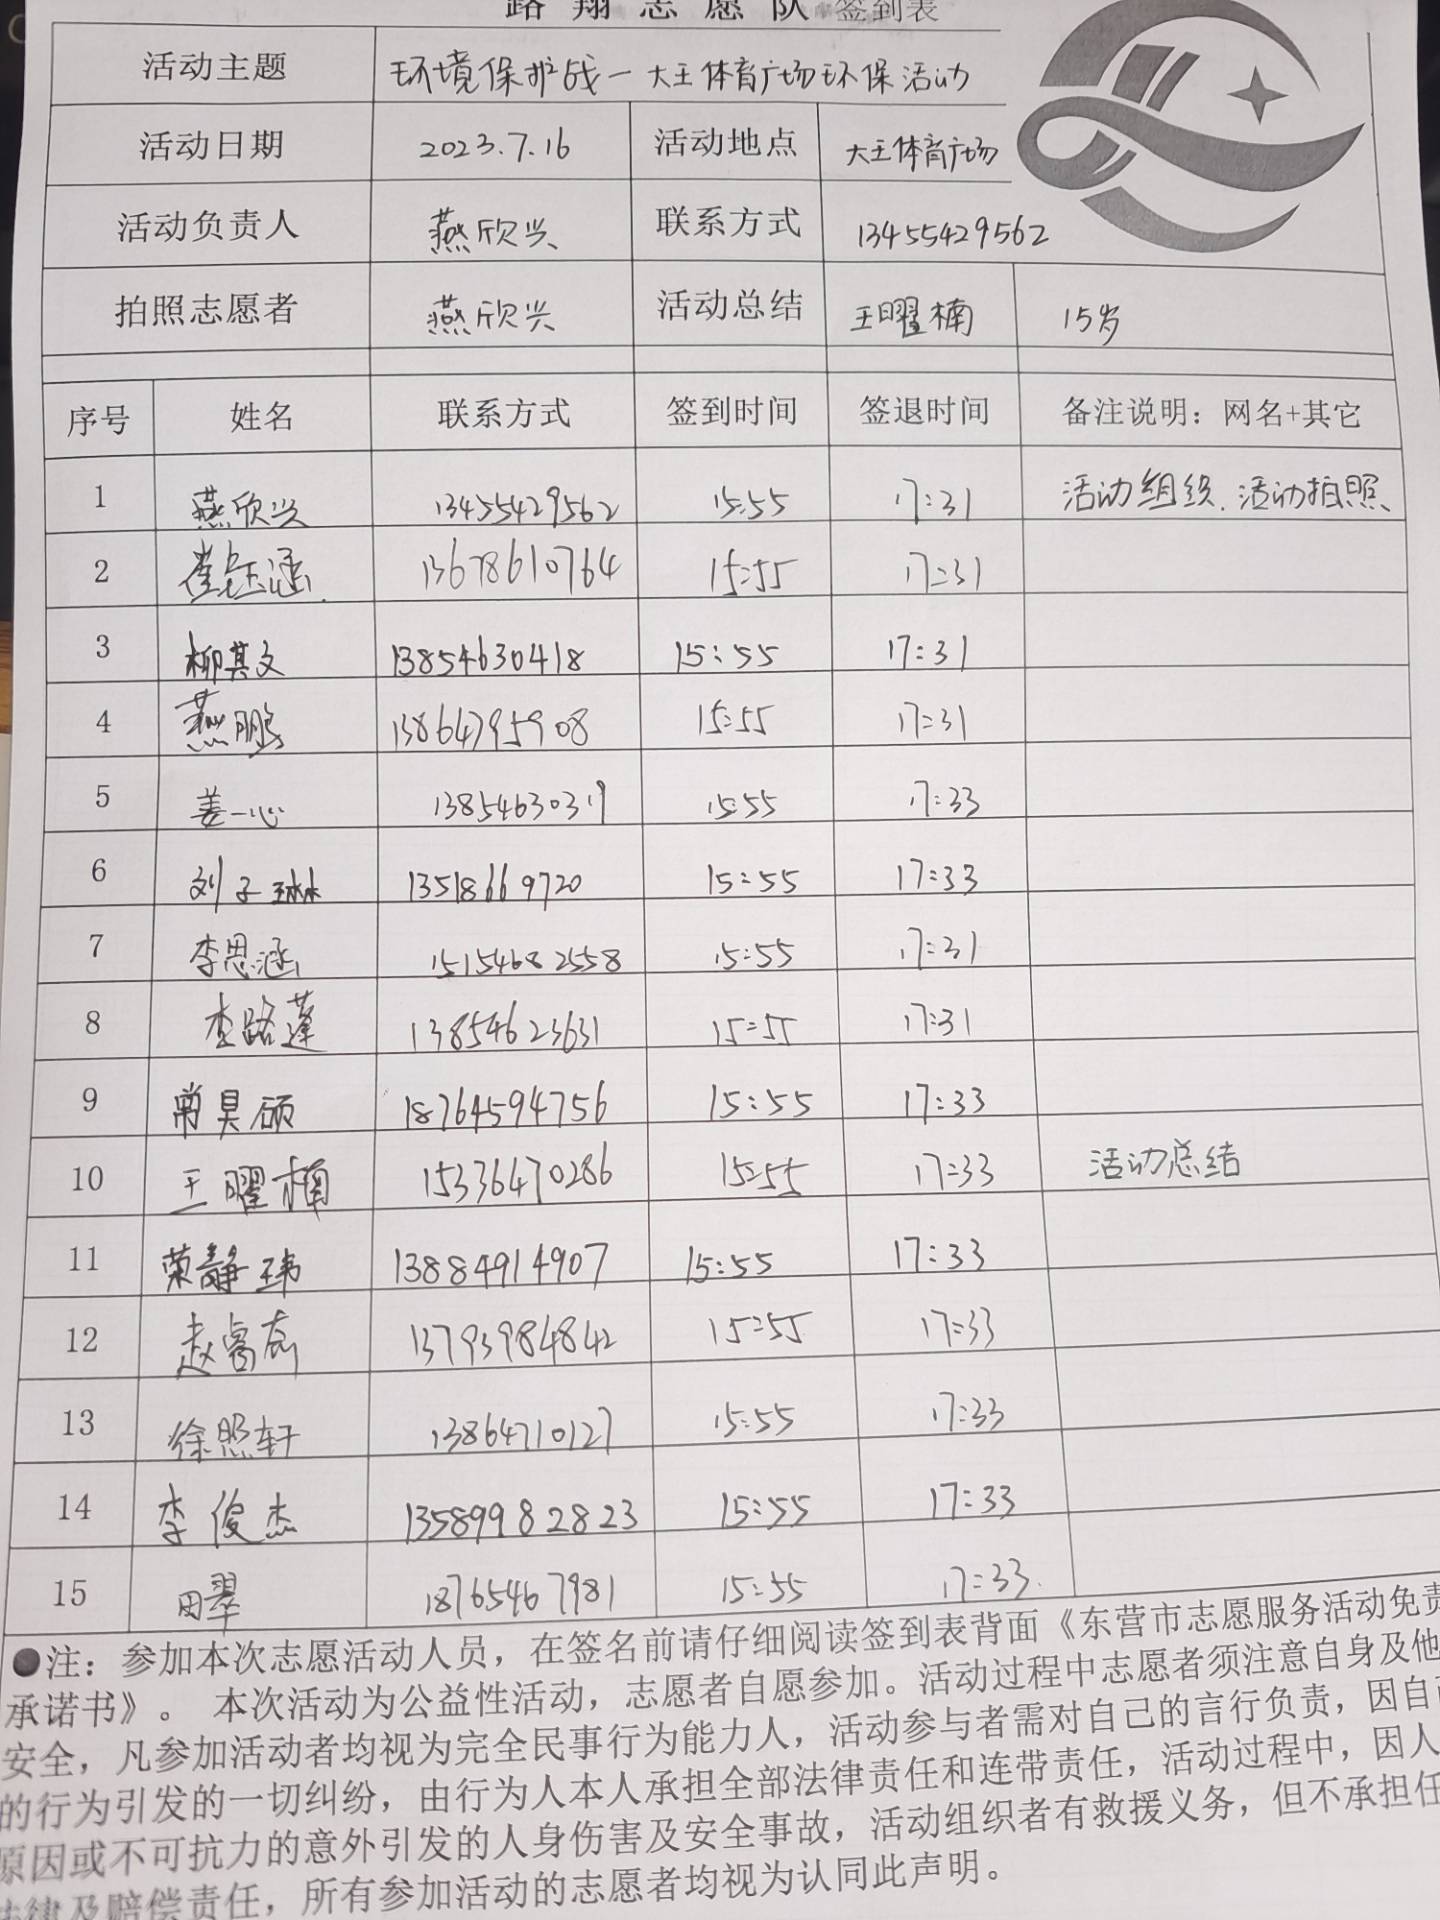 路翔志愿队 签到表
活动主题 环境保护战一大王体育广场环保活动
活动日期 2023.7.16 活动地点 大王体育广场
活动负责人 燕欣兴 联系方式 13455429562
拍照志愿者 燕欣兴 活动总结 王曜楠 15岁
序号 姓名 联系方式 签到时间 签退时间 备注说明：网名+其它
1 燕欣兴 13455429562 15:55 17:31 活动组织.活动拍照
2 崔钰涵 13678610764 15:55 17:31
3 柳其文 13854630418 15:55 17:31
4 燕鹏 13864795908 15:55 17:31
5 姜一心 13854630319 15:55 17:33
6 刘子琳 13518669720 15:55 17:33
7 李思涵 15154682558 15:55 17:31
8 李路蓬 13854623631 15:55 17:31
9 常昊硕 18764594756 15:55 17:33
10 王曜楠 15336470286 15:55 17:33 活动总结
11 荣静玮 13884914907 15:55 17:33
12 13793984842 15:55 17:33
13 徐照轩 13864710127 15:55 17:33
14 李俊杰 13589982823 15:55 17:33
15 田翠 18765467981 15:55 17:33.
●注：参加本次志愿活动人员，在签名前请仔细阅读签到表背面《东营市志愿服务活动免责
承诺书》。 本次活动为公益性活动，志愿者自愿参加。活动过程中志愿者须注意自身及他
安全，凡参加活动者均视为完全民事行为能力人，活动参与者需对自己的言行负责，因自己
的行为引发的一切纠纷，由行为人本人承担全部法律责任和连带责任，活动过程中，因人
原因或不可抗力的意外引发的人身伤害及安全事故，活动组织者有救援义务，但不承担任
法律及赔偿责任，所有参加活动的志愿者均视为认同此声明。